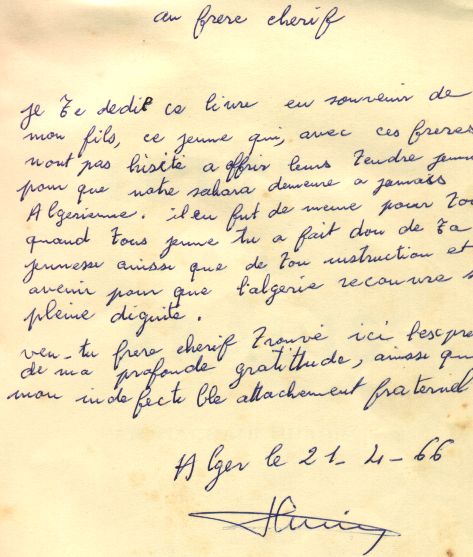 au frere cherif
je te dedie ce livre en souvenir de
mon fils, ce jeune qui, avec ces freres
n'ont pas hisité a offrir leurs tendre jeun
pour que notre sahara demeure a jamais
Algerienne. il en fut de meme pour to
quand tous jeune tu a fait don de ta
jeunesse ainsse que de ton instruction et
avenir pour que l'algerie recouvre s
pleine dignité.
veu-tu frere cherif trouvé ici l'expre
de ma profonde gratittude, ainsse que
mon indefectible attachement fraternel
Alger le 21-4-66